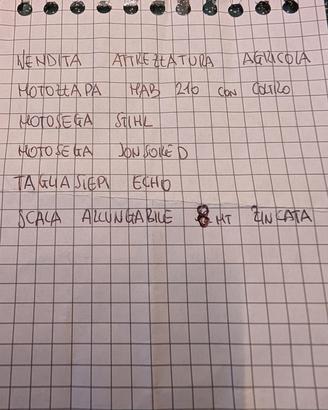 VENDITA ATTREZZATURA AGRICOLA
MOTOZZAPA MAB 210 CON COLTRO
MOTOSEGA STIHL
MOTOSEGA JONSORED
TAGLIASIEPI ECHO
SCALA ALLUNGABILE 8 MT ZINCATA